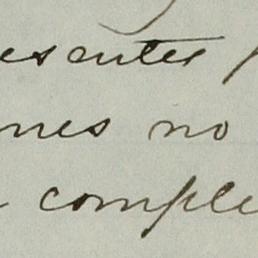 esentes
nes no
comple